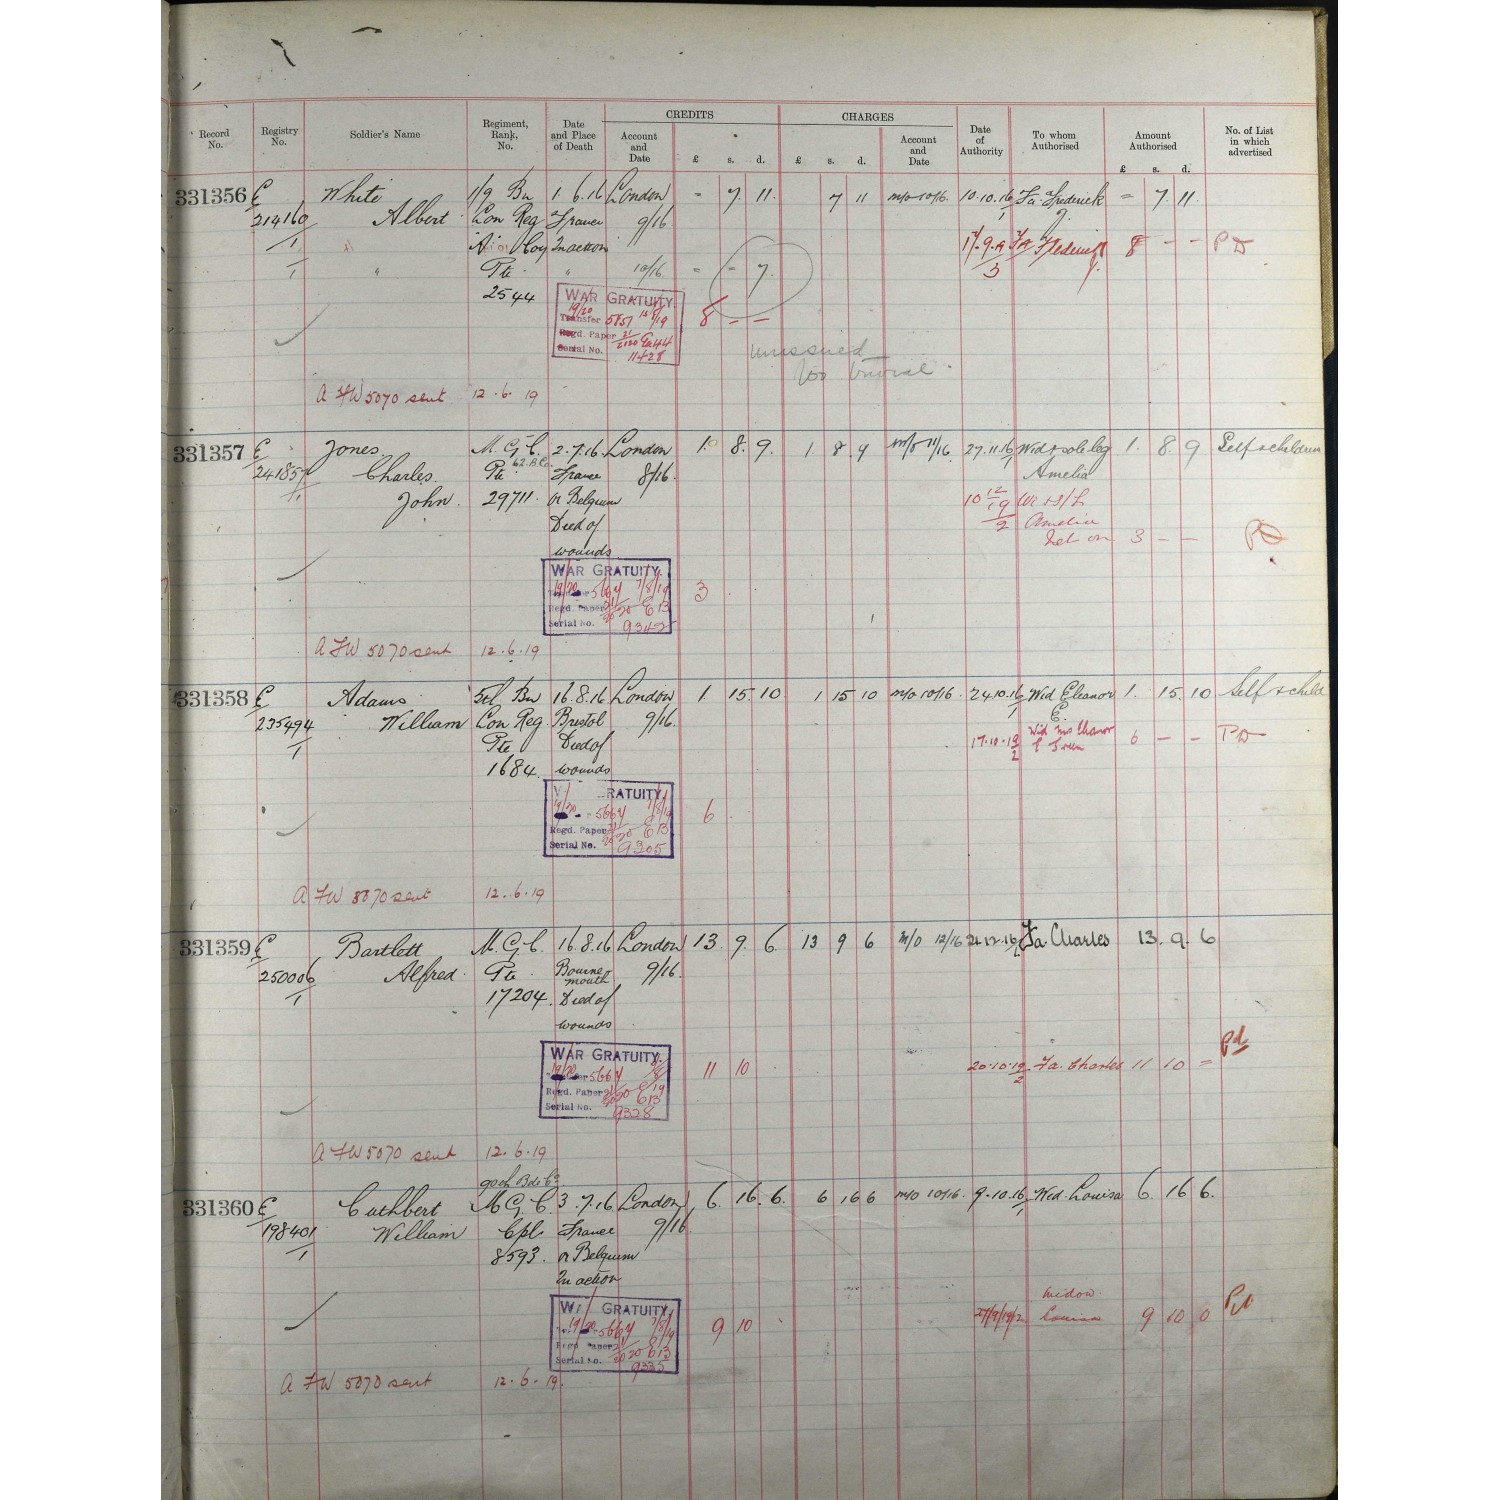 Record No.
Registry No.
Soldier's Name
Regiment, Rank, No.
Date and Place of Death
CREDITS
Account and Date
£ s. d.
CHARGES
£ s. d.
Account and Date
Date of Authority
To whom Authorised
Amount Authorised
£ s. d.
No. of List in which advertised
331356 E White 1/9 Bn 1.6.16 London = 7. 11. 7 11 m/o 10/16. 10.10.16 Fa. Frederick = 7. 11.
214160/1 Albert Lon Reg France 9/16 1 J.
" 'A' Coy In action Fa Frederick J. 8 - - PD
1 " Pte " 10/16 = - 7.
2544
WAR GRATUITY. 8 - -
19/20 13/8/19
Transfer 5857
Regd. Paper 21/2020
Serial No. 11428
unissued
too trivial
A FW 5070 sent 12.6.19
331357 E Jones M.G.C. 2.7.16 London 1. 8. 9. 1 8 9 m/o 11/16. 27.11.16 Wid & sole leg 1. 8. 9 Self & children
241857/1 Charles Pte 62.B.Co. France 8/16. 1 Amelia
John. 29711. or Belgium 10 12/19 Wi & S/L
Died of 2 Amelia
wounds 3 - - PD
WAR GRATUITY.
19/20 5664 7/8/19 3
Regd. Paper 21/2020 613
Serial No. 9342
A FW 5070 sent 12.6.19
331358 E Adams 5th Bn 16.8.16 London 1. 15. 10 1 15 10 m/o 10/16. 24.10.16 Wid Eleanor 1. 15. 10 Self & child
235494/1 William Lon Reg. Bristol 9/16. 1 E.
Pte Died of 17.10.19 Wid Mrs Eleanor 6 - - PD
1684. wounds 2
RATUITY.
19/20 5664 7/8/19 6
Regd. Paper 21/2020 613
Serial No. 9305
A FW 5070 sent 12.6.19
331359 E Bartlett M.G.C. 16.8.16 London 13. 9. 6 13 9 6 m/o 12/16 21.12.16 Fa. Charles 13. 9. 6
250006/1 Alfred. Pte. Bourne 9/16.
mouth
17204. Died of
wounds
Pd
WAR GRATUITY.
19/20 5664 7/8/19 11 10 20.10.19 Fa. Charles 11 10 =
Regd. Paper 21/2020 613 2
Serial No. 9328
A FW 5070 sent 12.6.19
90th Bde Co
331360 E Cuthbert M.G.C. 3.7.16 London 6. 16. 6. 6 16 6 m/o 10/16. 9.10.16 Wid. Louisa 6. 16 6.
198401/1 William Cpl. France 9/16 1
8593. or Belgium
In action
widow.
WA GRATUITY. 27/9/19/2 Louisa 9 10 0 Pd
19/20 5664 7/8/19 9 10
Regd. Paper 21/2020 613
Serial No. 9335
A FW 5070 sent 12.6.19.